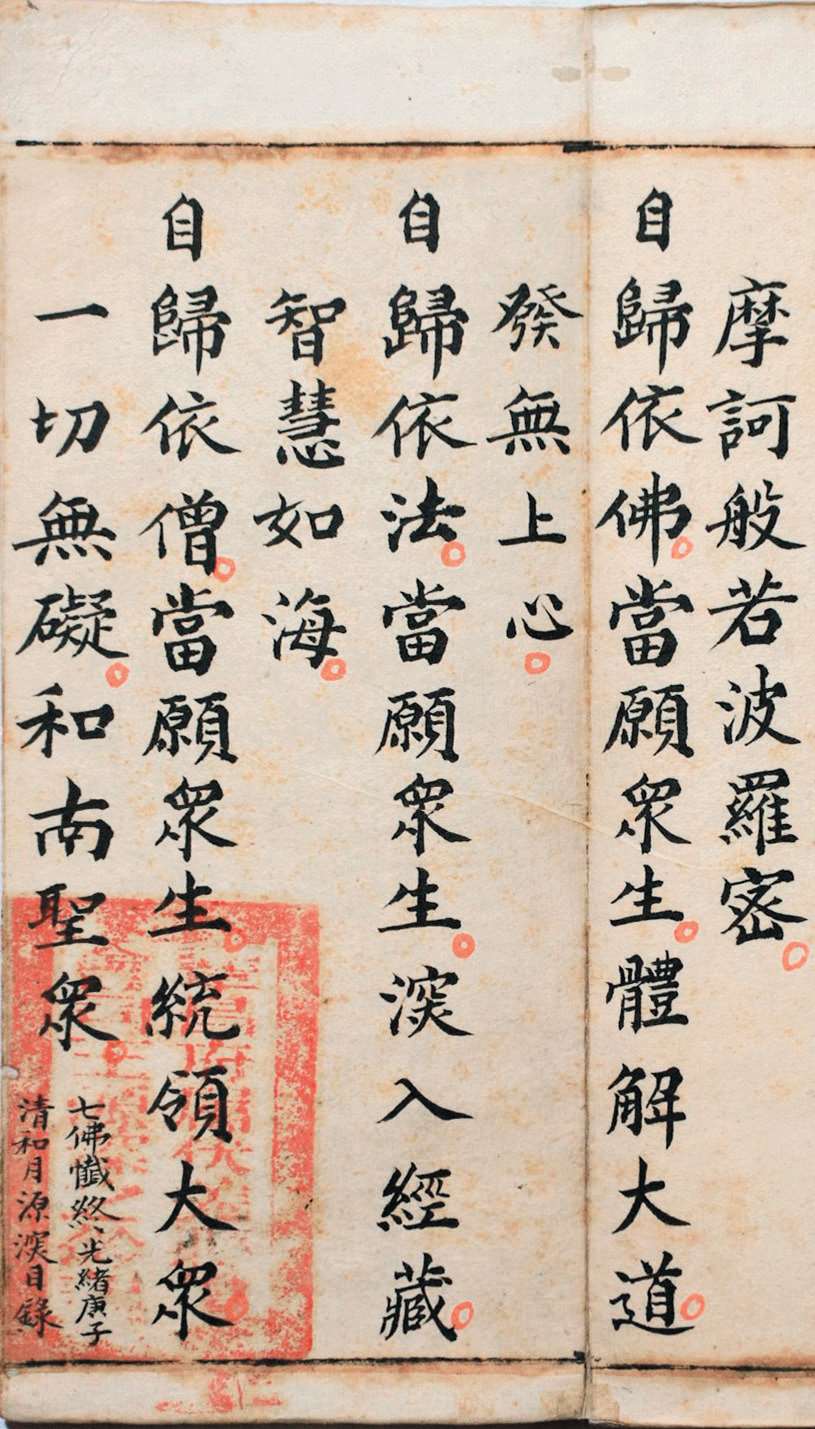 摩訶般若波羅密
自歸依佛當願眾生體解大道
發無上心
自歸依法當願眾生深入經藏
智慧如海
自歸依僧當願眾生統領大眾
一切無礙和南聖眾
七佛懺終光緒庚子
清和月源深目錄